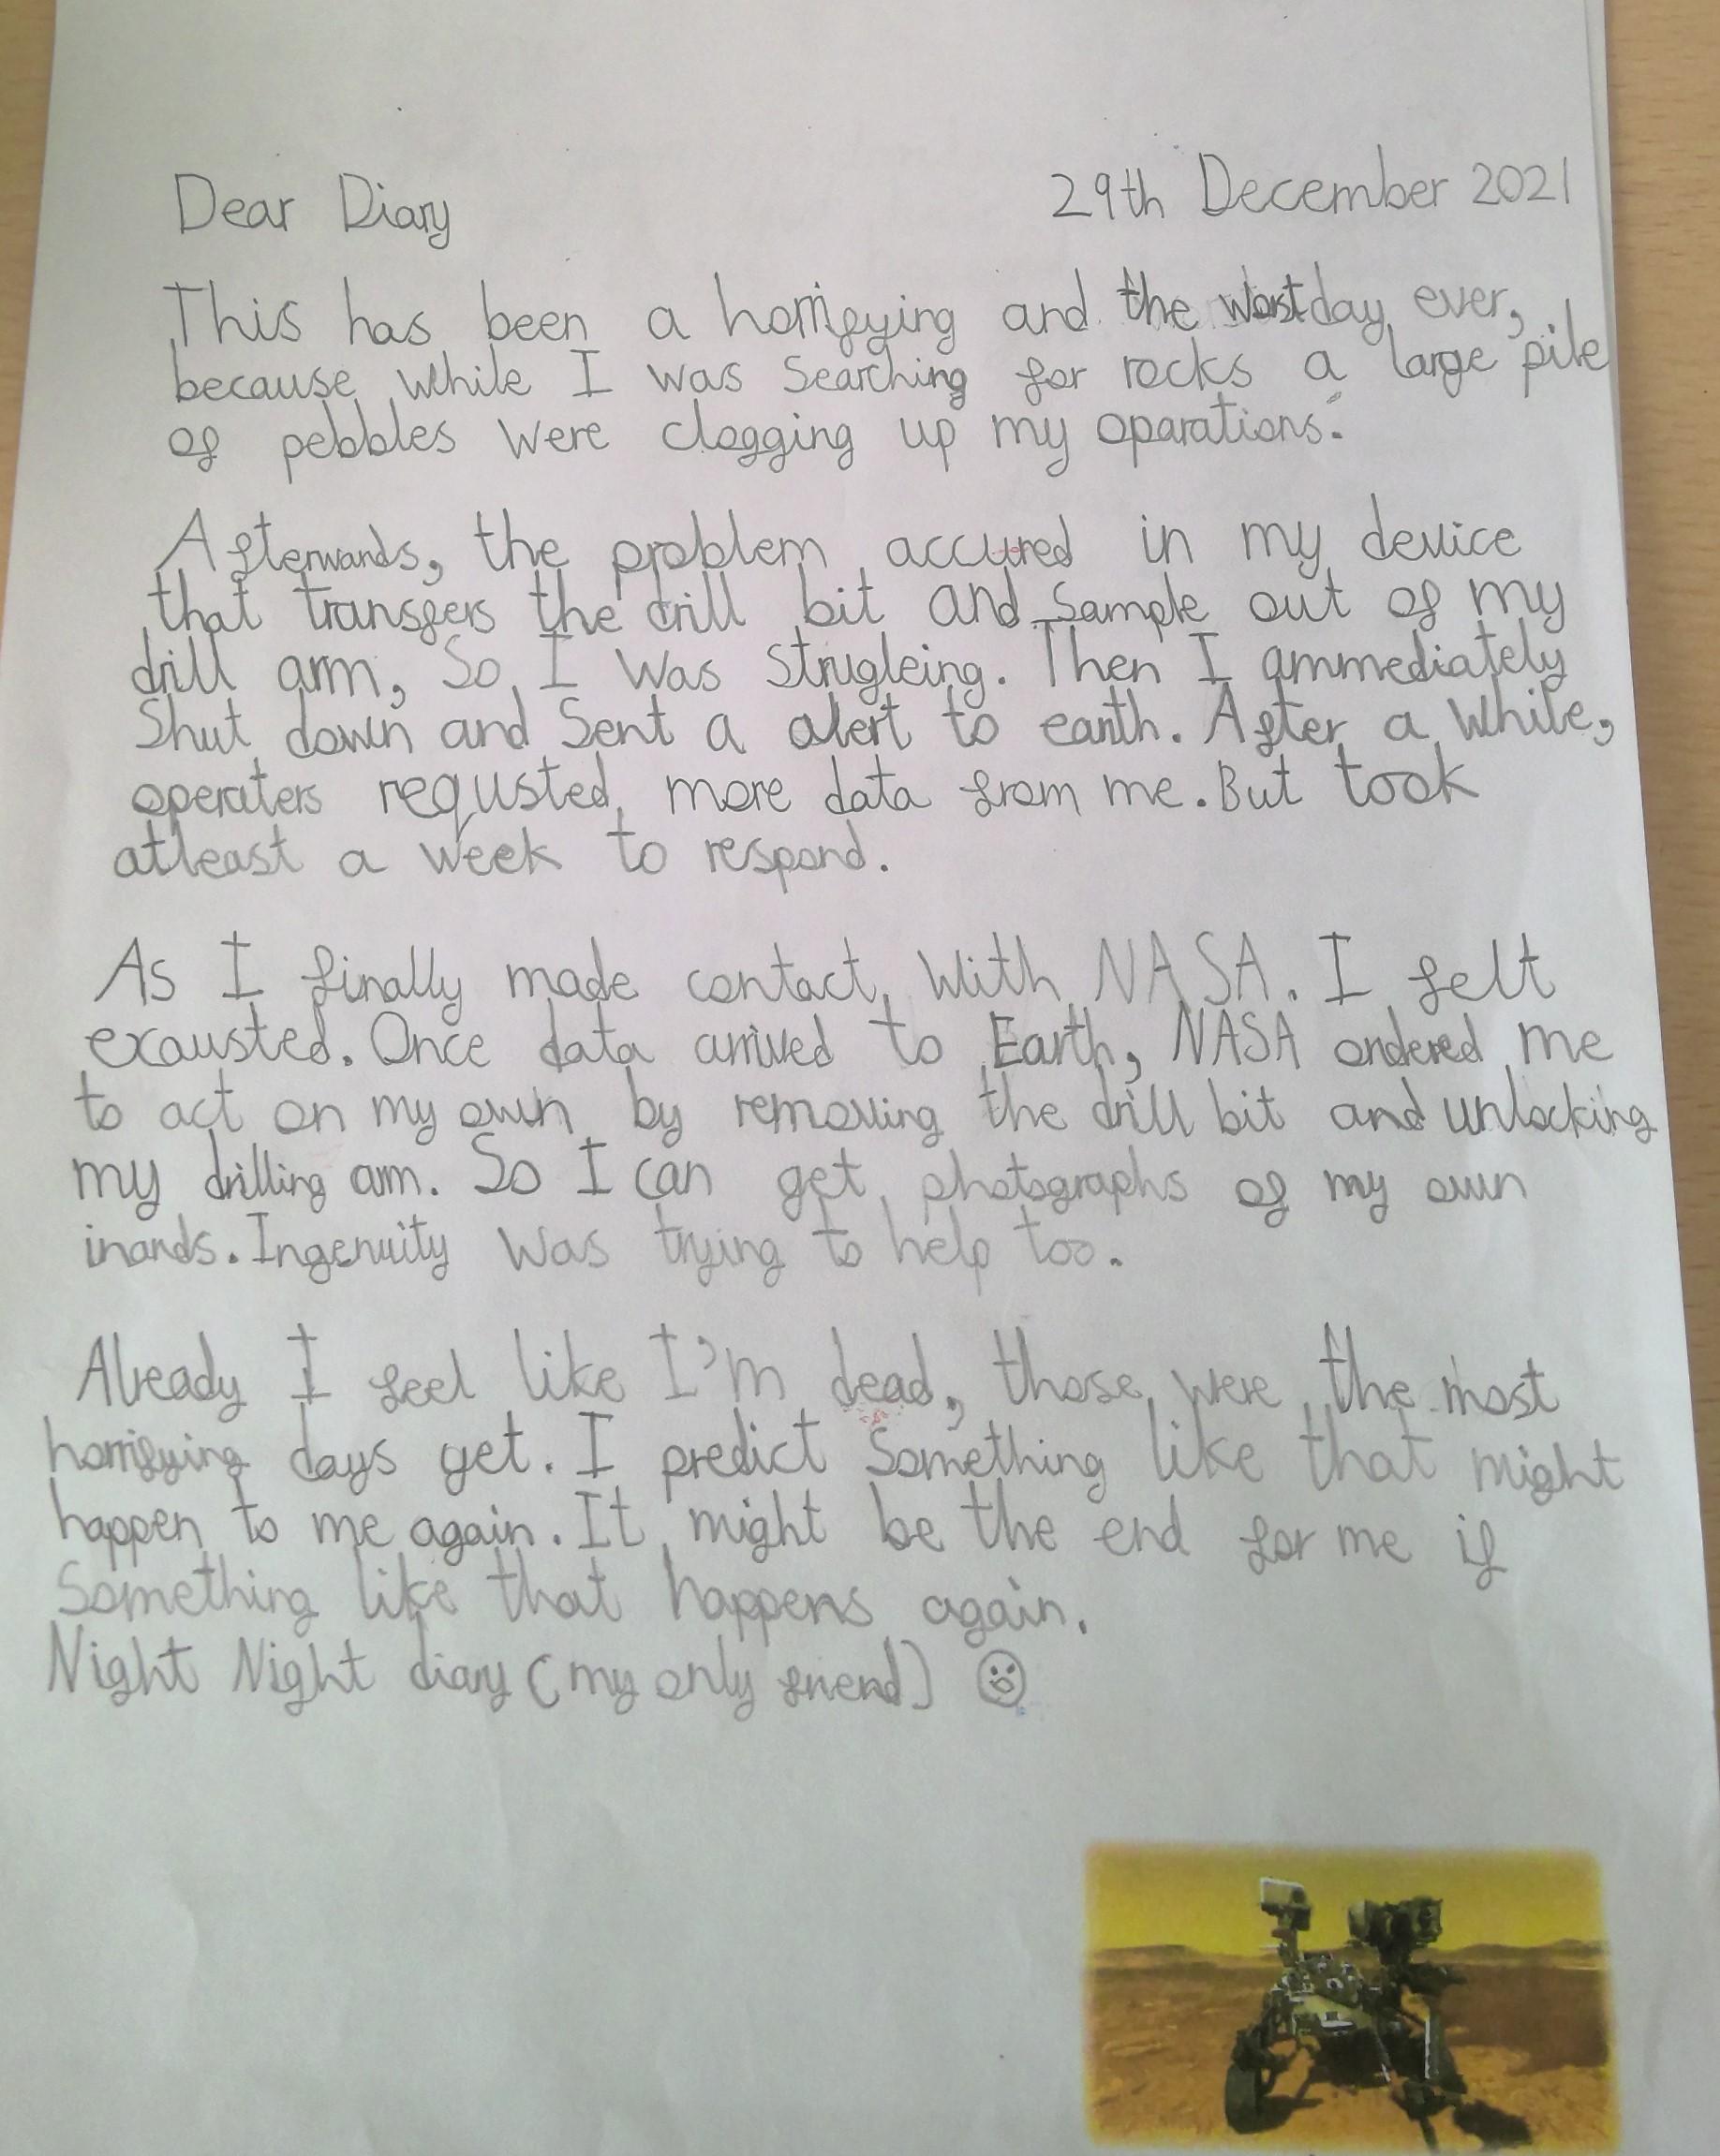 Dear Diary 29th December 2021
This has been a horrifying and the worst day ever,
because while I was searching for rocks a large pile
of pebbles were clogging up my oparations.
Afterwards, the problem accured in my device
that transfers the drill bit and sample out of my
drill arm, So I was strugleing. Then I ammediately
Shut down and sent a alert to earth. After a while,
operaters requsted more data from me. But took
atleast a week to respond.
As I finally made contact with NASA. I felt
exausted. Once data arrived to Earth, NASA ordered me
to act on my own by removing the drill bit and unlocking
my drilling arm. So I can get photographs of my own
inards. Ingenuity was trying to help too.
Already I feel like I'm dead, those were the most
horrifying days yet. I predict something like that might
happen to me again. It might be the end for me if
Something like that happens again.
Night Night diary (my only friend)